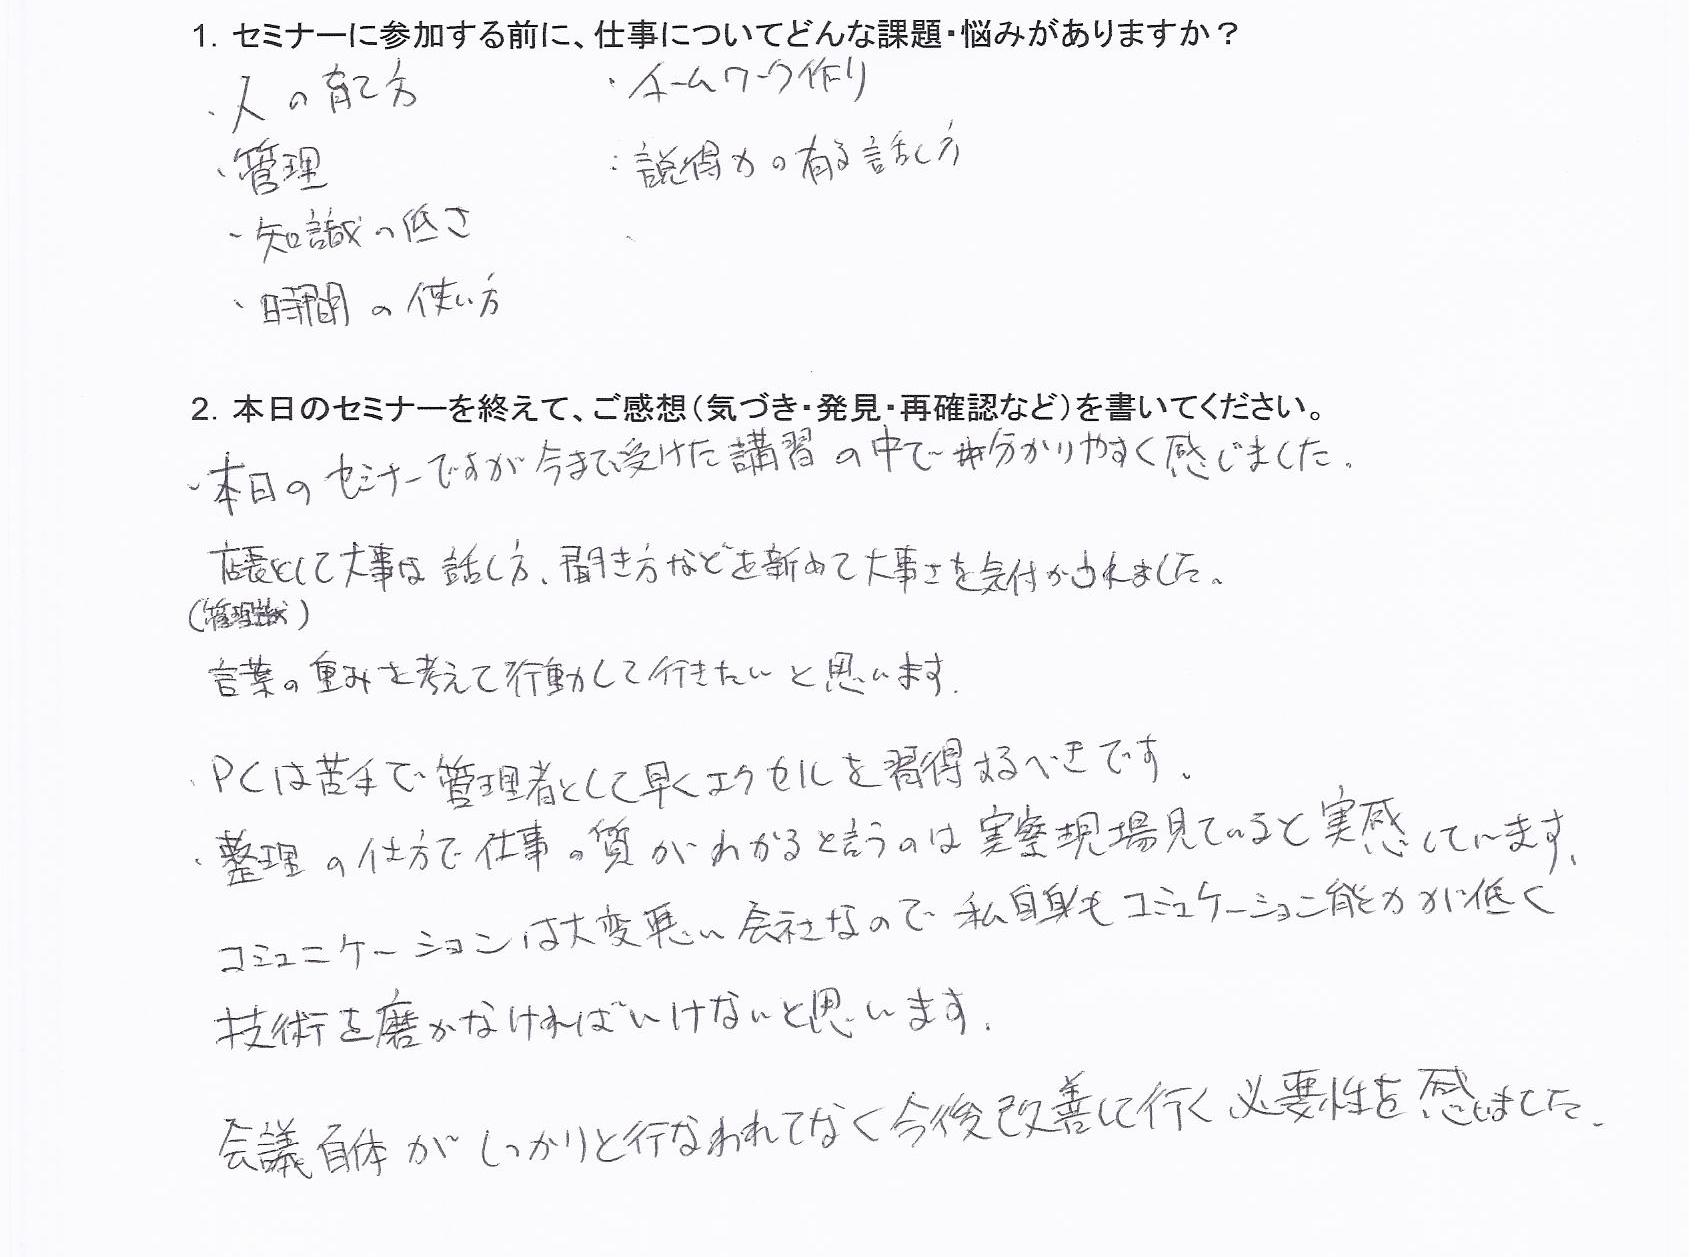 1. セミナーに参加する前に、仕事についてどんな課題・悩みがありますか？
・人の育て方
・チームワーク作り
・管理
・説得力の有る話し方
・知識の低さ
・時間の使い方
2. 本日のセミナーを終えて、ご感想（気づき・発見・再確認など）を書いてください。
・本日のセミナーですが今まで受けた講習の中で分かりやすく感じました。
店長として大事な話し方、聞き方などを新めて大事さを気付かされました。
(管理職)
言葉の重みを考えて行動して行きたいと思います.
・PCは苦手で管理者として早くエクセルを習得するべきです。
・整理の仕方で仕事の質がわかると言うのは実察現場見ていると実感しています.
コミュニケーションは大変悪い会社なので私自身もコミュケーション能力が低く
技術を磨かなければいけないと思います.
会議自体がしっかりと行なわれてなく今後改善して行く必要性を感じました.